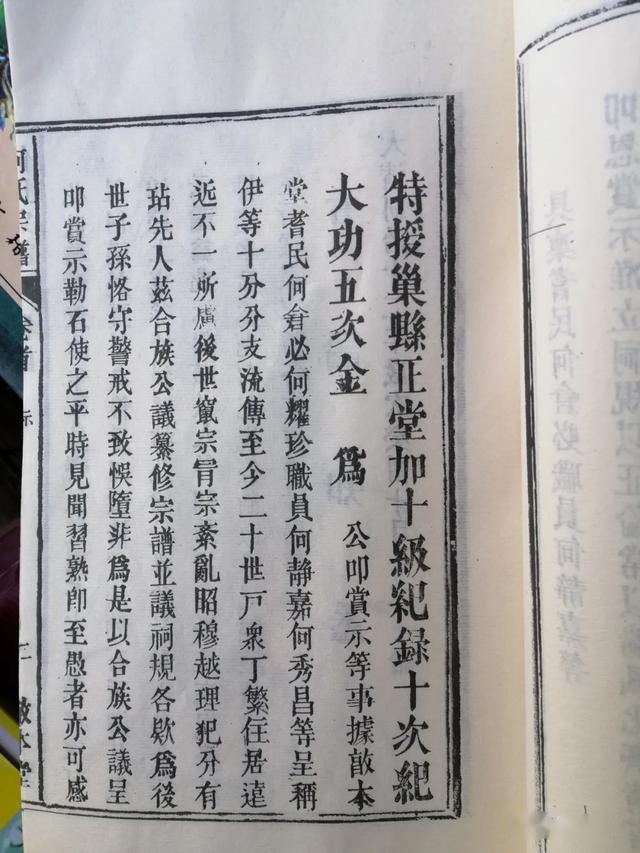 特授巢縣正堂加十級紀録十次紀
大功五次金　爲
公叩賞示等事據敵本
堂耆民何倉必何耀珍職員何静嘉何秀昌等呈稱
伊等十分分支流傳至今二十世戸衆丁繁住居遠
近不一所慮後世竄宗冐宗紊亂昭穆越理犯分有
玷先人茲合族公議纂修宗譜並議祠規各欵爲後
世子孫恪守警戒不致悞墮非爲是以合族公議呈
叩賞示勒石使之平時見聞習熟卽至愚者亦可感
何氏宗譜
卷首
示
本堂
叩恩賞示准立祠規以正
具稟耆民何倉必職員何静嘉等